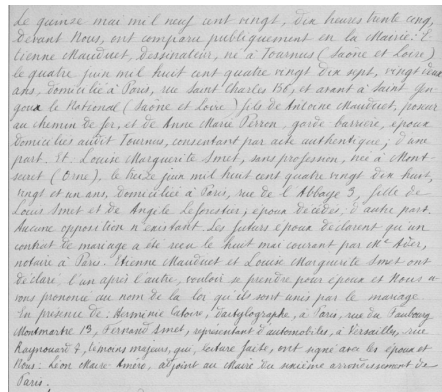 Le quinze mai mil neuf cent vingt, dix heures trente cinq,
devant Nous, ont comparu publiquement en la Mairie: E
tienne Mauduet, dessinateur, né à Tournus (Saône et Loire)
le quatre juin mil huit cent quatre vingt dix sept, vingt deux
ans, domicilié à Paris, rue Saint Charles 136, et avant à Saint Gen
goux le National (Saône et Loire) fils de Antoine Mauduet, poseur
au chemin de fer, et de Anne Marie Perron, garde-barrière, époux
domiciliés audit Tournus, consentant par acte authentique; d'une
part. Et. Louise Marguerite Smet, sans profession, née à Mont-
suret (Orne), le treize juin mil huit cent quatre vingt dix huit,
vingt et un ans, domiciliée à Paris, rue de l'Abbaye 3, fille de
Louis Smet et de Angèle Leforestier, époux décédés; d'autre part.
Aucune opposition n'existant. Les futurs époux déclarent qu'un
contrat de mariage a été reçu le huit mai courant par Me
notaire à Paris. Etienne Mauduet et Louise Marguerite Smet ont
déclaré l'un après l'autre, vouloir se prendre pour époux et Nous a-
vons prononcé au nom de la loi qu'ils sont unis par le mariage.
En présence de: Herminie dactylographe, à Paris, rue du Faubourg
Montmartre 13, Fernand Smet, représentant d'automobiles, à Versailles, rue
Raynouard 7, témoins majeurs, qui, lecture faite, ont signé avec les époux et
Nous. Léon Marie adjoint au Maire du sixième arrondissement de
Paris.